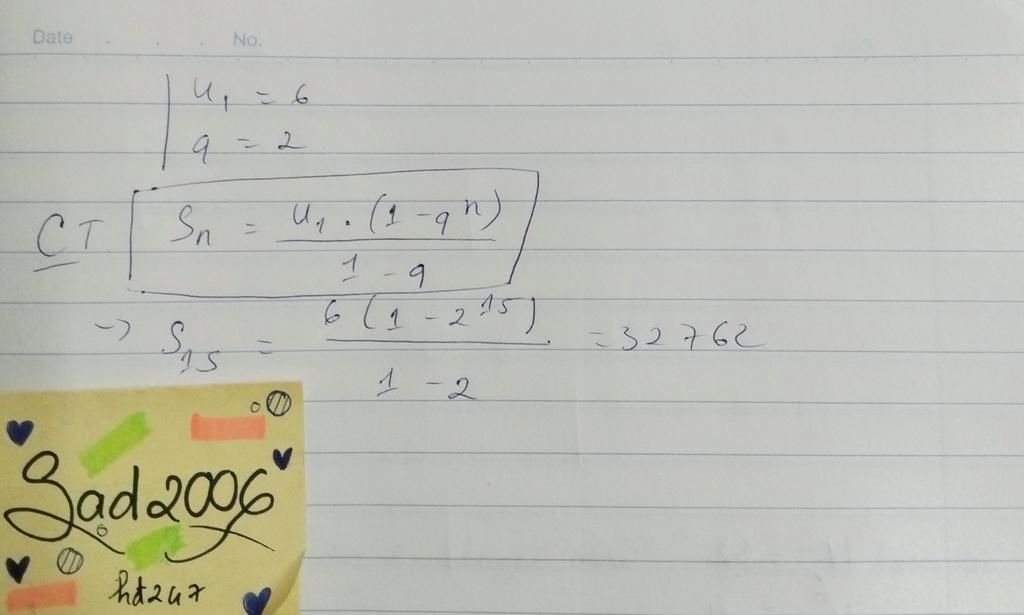 Date . . . No.
u₁ = 6
q = 2
CT Sₙ = u₁ . (1 - qⁿ) / 1 - q
→ S₁₅ = 6 (1 - 2¹⁵) / 1 - 2 = 32762
Sad2006
hd247